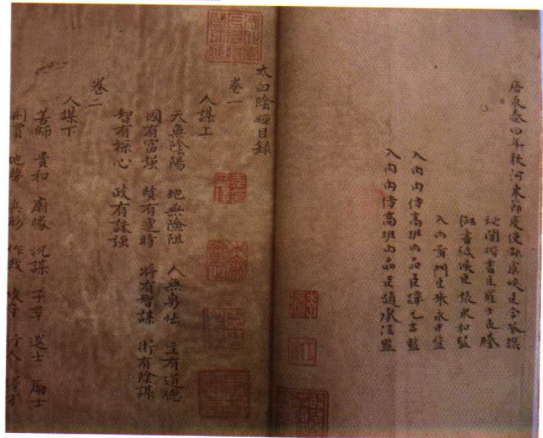 唐永泰四年秋河東節度使都虞候臣李筌撰
秘閣楷書臣羅士良謄
御書祗候臣張永和監
入內黃門臣朱永中監
入內內侍高班內品臣譚元吉監
入內內侍高班內品臣趙承信監
太白陰經目錄
卷一
人謀上
天無陰陽 地無險阻 人無勇怯 主有道德
國有富強 賢有遇時 將有智謀 術有陰謀
數有探心 政有誅強
卷二
人謀下
善師 貴和 廟勝 沉謀 子卒 選士 勵士
刑賞 地勢 兵形 作戰 攻守 行人